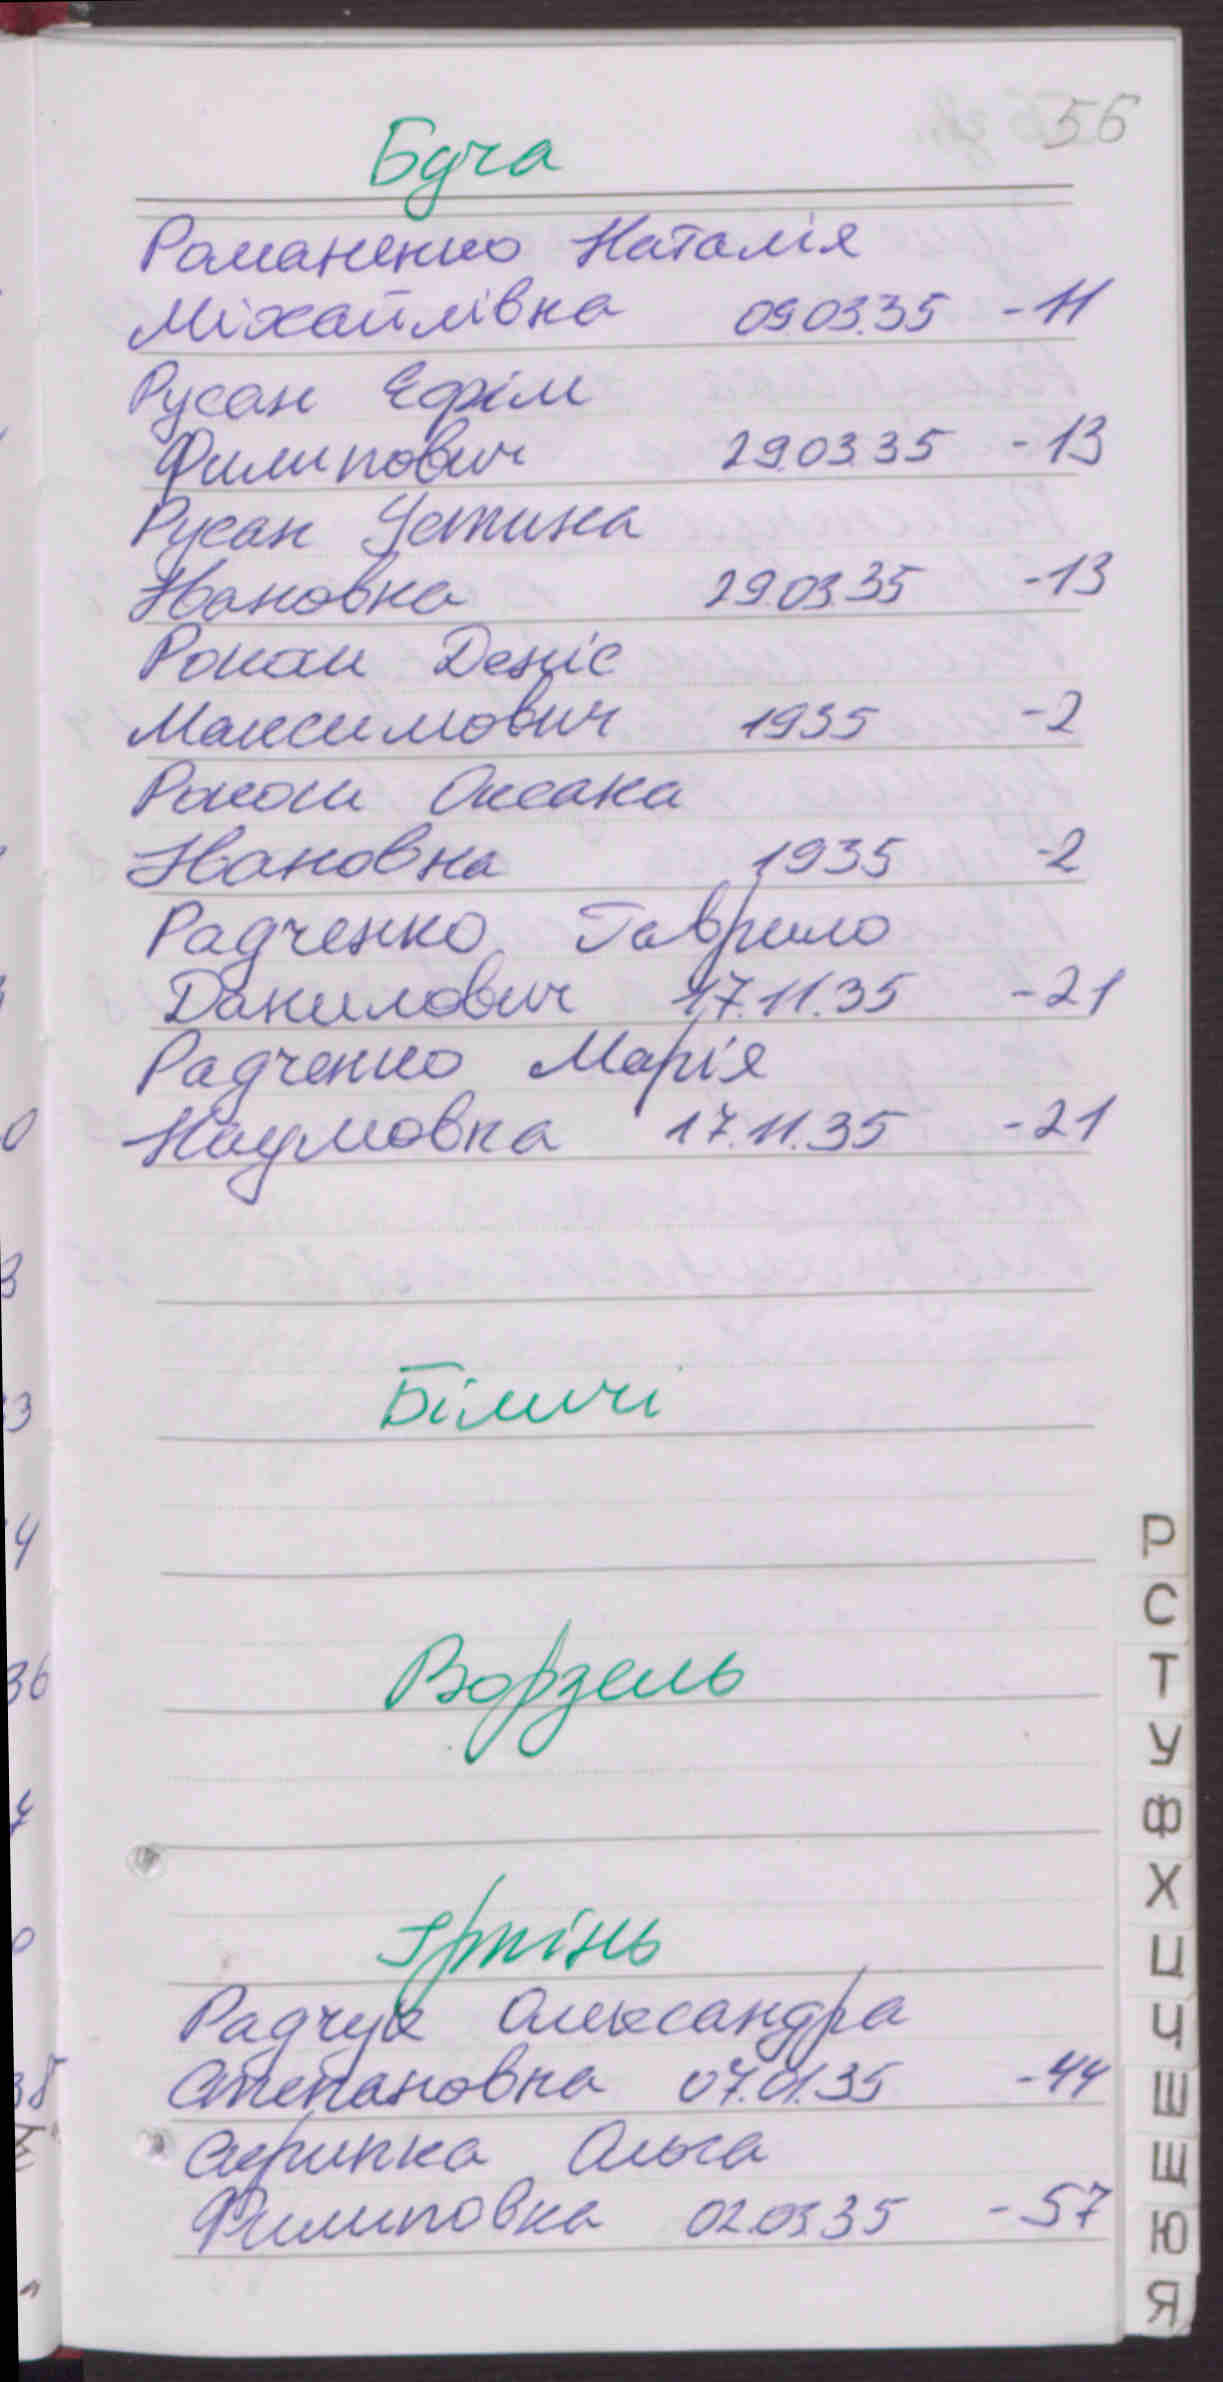 56
Буча
Романенко Наталія
Міхайлівна 09.03.35 -11
Русан Єфім
Филипович 29.03.35 -13
Русан Устина
Івановна 29.03.35 -13
Рокош Деніс
Максимович 1935 -2
Рокош Оксана
Івановна 1935 -2
Радченко Гаврило
Данилович 17.11.35 -21
Радченко Марія
Наумовна 17.11.35 -21
Біличі
Ворзель
Ірпінь
Радчук Александра
Степановна 07.01.35 -44
Скрипка Ольга
Филиповна 02.03.35 -57
Р
С
Т
У
Ф
Х
Ц
Ч
Ш
Щ
Ю
Я